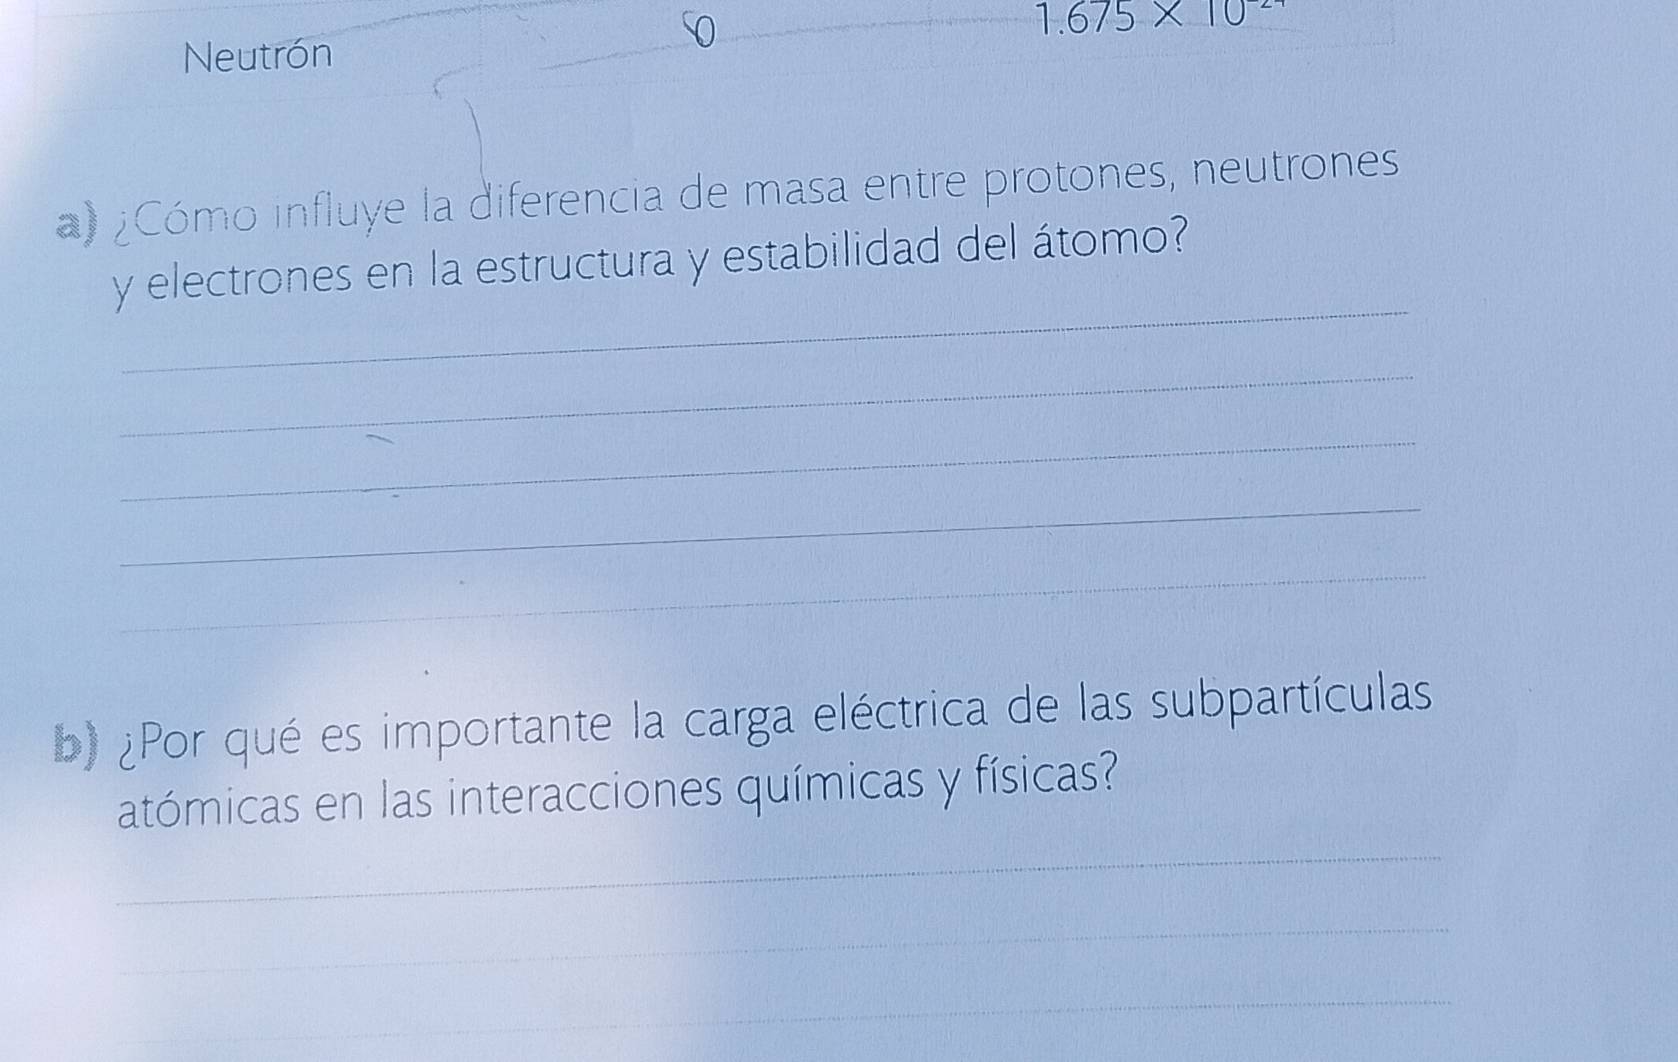 Neutrón 0 1.675 × 10⁻²⁴
a) ¿Cómo influye la diferencia de masa entre protones, neutrones
y electrones en la estructura y estabilidad del átomo?
b) ¿Por qué es importante la carga eléctrica de las subpartículas
atómicas en las interacciones químicas y físicas?